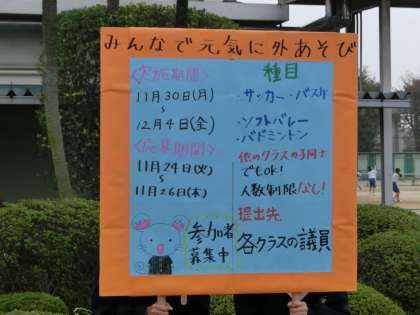 みんなで元気に外あそび
〈実施期間〉
11月30日(月)
～
12月4日(金)
〈応募期間〉
11月24日(火)
～
11月26日(木)
参加者
募集中
種目
・サッカー・バスケ
・ソフトバレー
・バドミントン
他のクラスの子同士
でもOK!
人数制限なし!
提出先
各クラスの議員